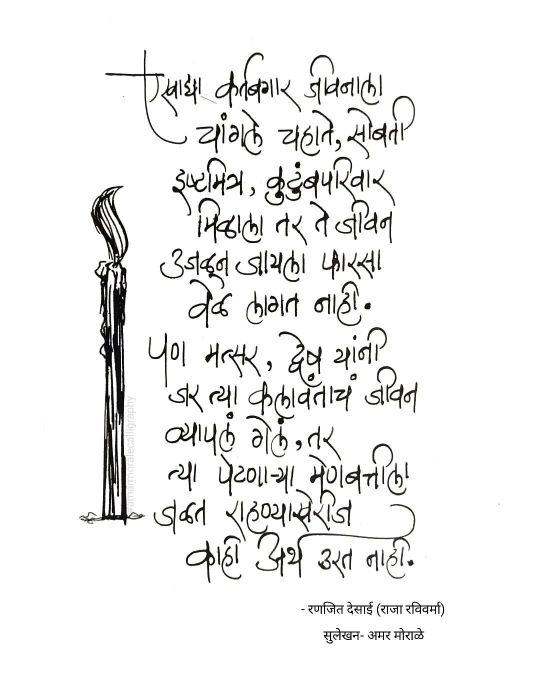 एखाद्या कर्तबगार जीवनाला
चांगले चहाते, सोबती
इष्टमित्र, कुटुंबपरिवार
मिळाला तर ते जीवन
उजळून जायला फारसा
वेळ लागत नाही.
पण मत्सर, द्वेष यांनी
जर त्या कलावंताचं जीवन
व्यापलं गेलं, तर
त्या पेटणाऱ्या मेणबत्तीला
जळत राहण्याखेरीज
काही अर्थ उरत नाही.
- रणजित देसाई (राजा रविवर्मा)
सुलेखन- अमर मोराळे